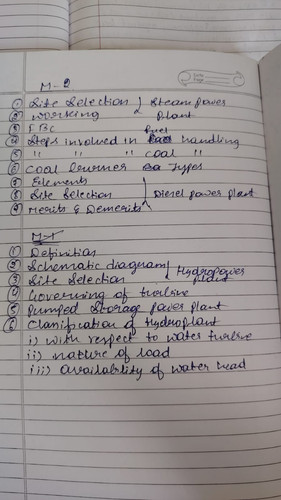 M-2
① Site Selection } Steam power
② Working } Plant
③ FBC
④ Steps involved in fuel handling
⑤ " " " coal "
⑥ Coal burner Types
⑦ Elements
⑧ Site Selection } Diesel power plant
⑨ Merits & Demerits
M-1
① Definition
② Schematic diagram } Hydropower
③ Site Selection } plant
④ Governing of turbine
⑤ Pumped Storage power plant
⑥ Classification of Hydroplant
i) with respect to water turbine
ii) nature of load
iii) availability of water head